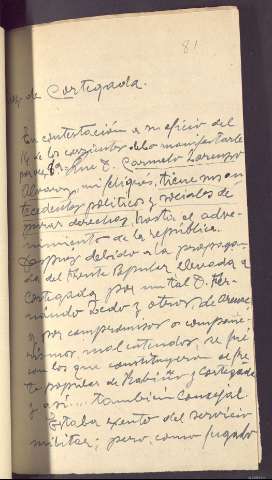 81
de Cortegada.
En contestación a su oficio del
14 de los corrientes debo manifestarle
que D. Carmelo Lorenzo
Alvarez, mi feligrés, tiene ms an
tecedentes politicos y sociales de
puras derechas, hasta el adve-
nimiento de la república.
Despues debido a la propagan-
da del Frente Popular elevada a
Cortegada por un tal D. Fer-
nando Dedo y otros, de Arnoya
y por compromisos o compañe-
rismos mal entendos, se fué
con los que constituyeron el fren
te popular de Rabiño y Cortegada
y así.... tambien Concejal
Estaba exento del servicio
militar; pero, como fugado